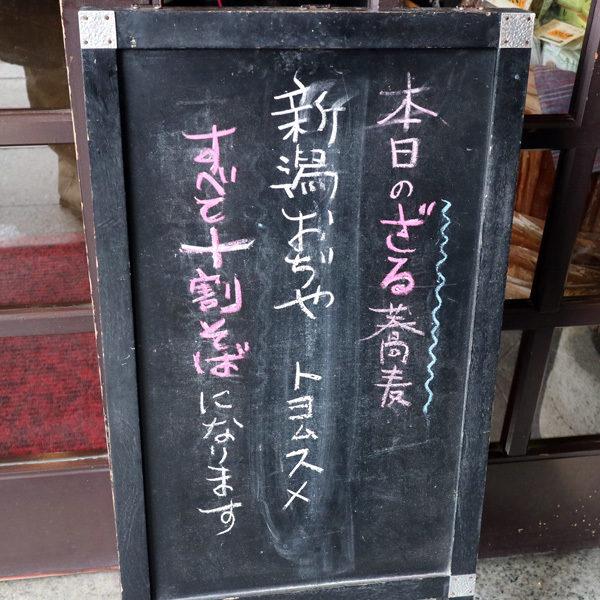 本日のざる蕎麦
新潟おぢや トヨムスメ
すべて十割そばになります